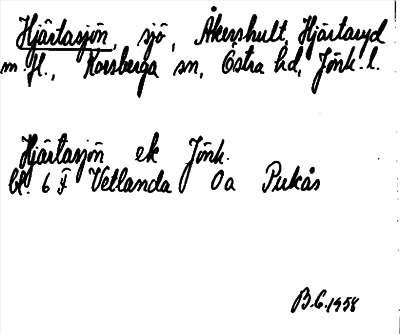 Hjärtasjön, sjö, Åkershult, Hjärtaryd
m.fl., Korsberga sn, Östra hd, Jönk. l.
Hjärtasjön ek Jönk.
bl. 6 F Vetlanda 0a Pukås
B.G. 1958